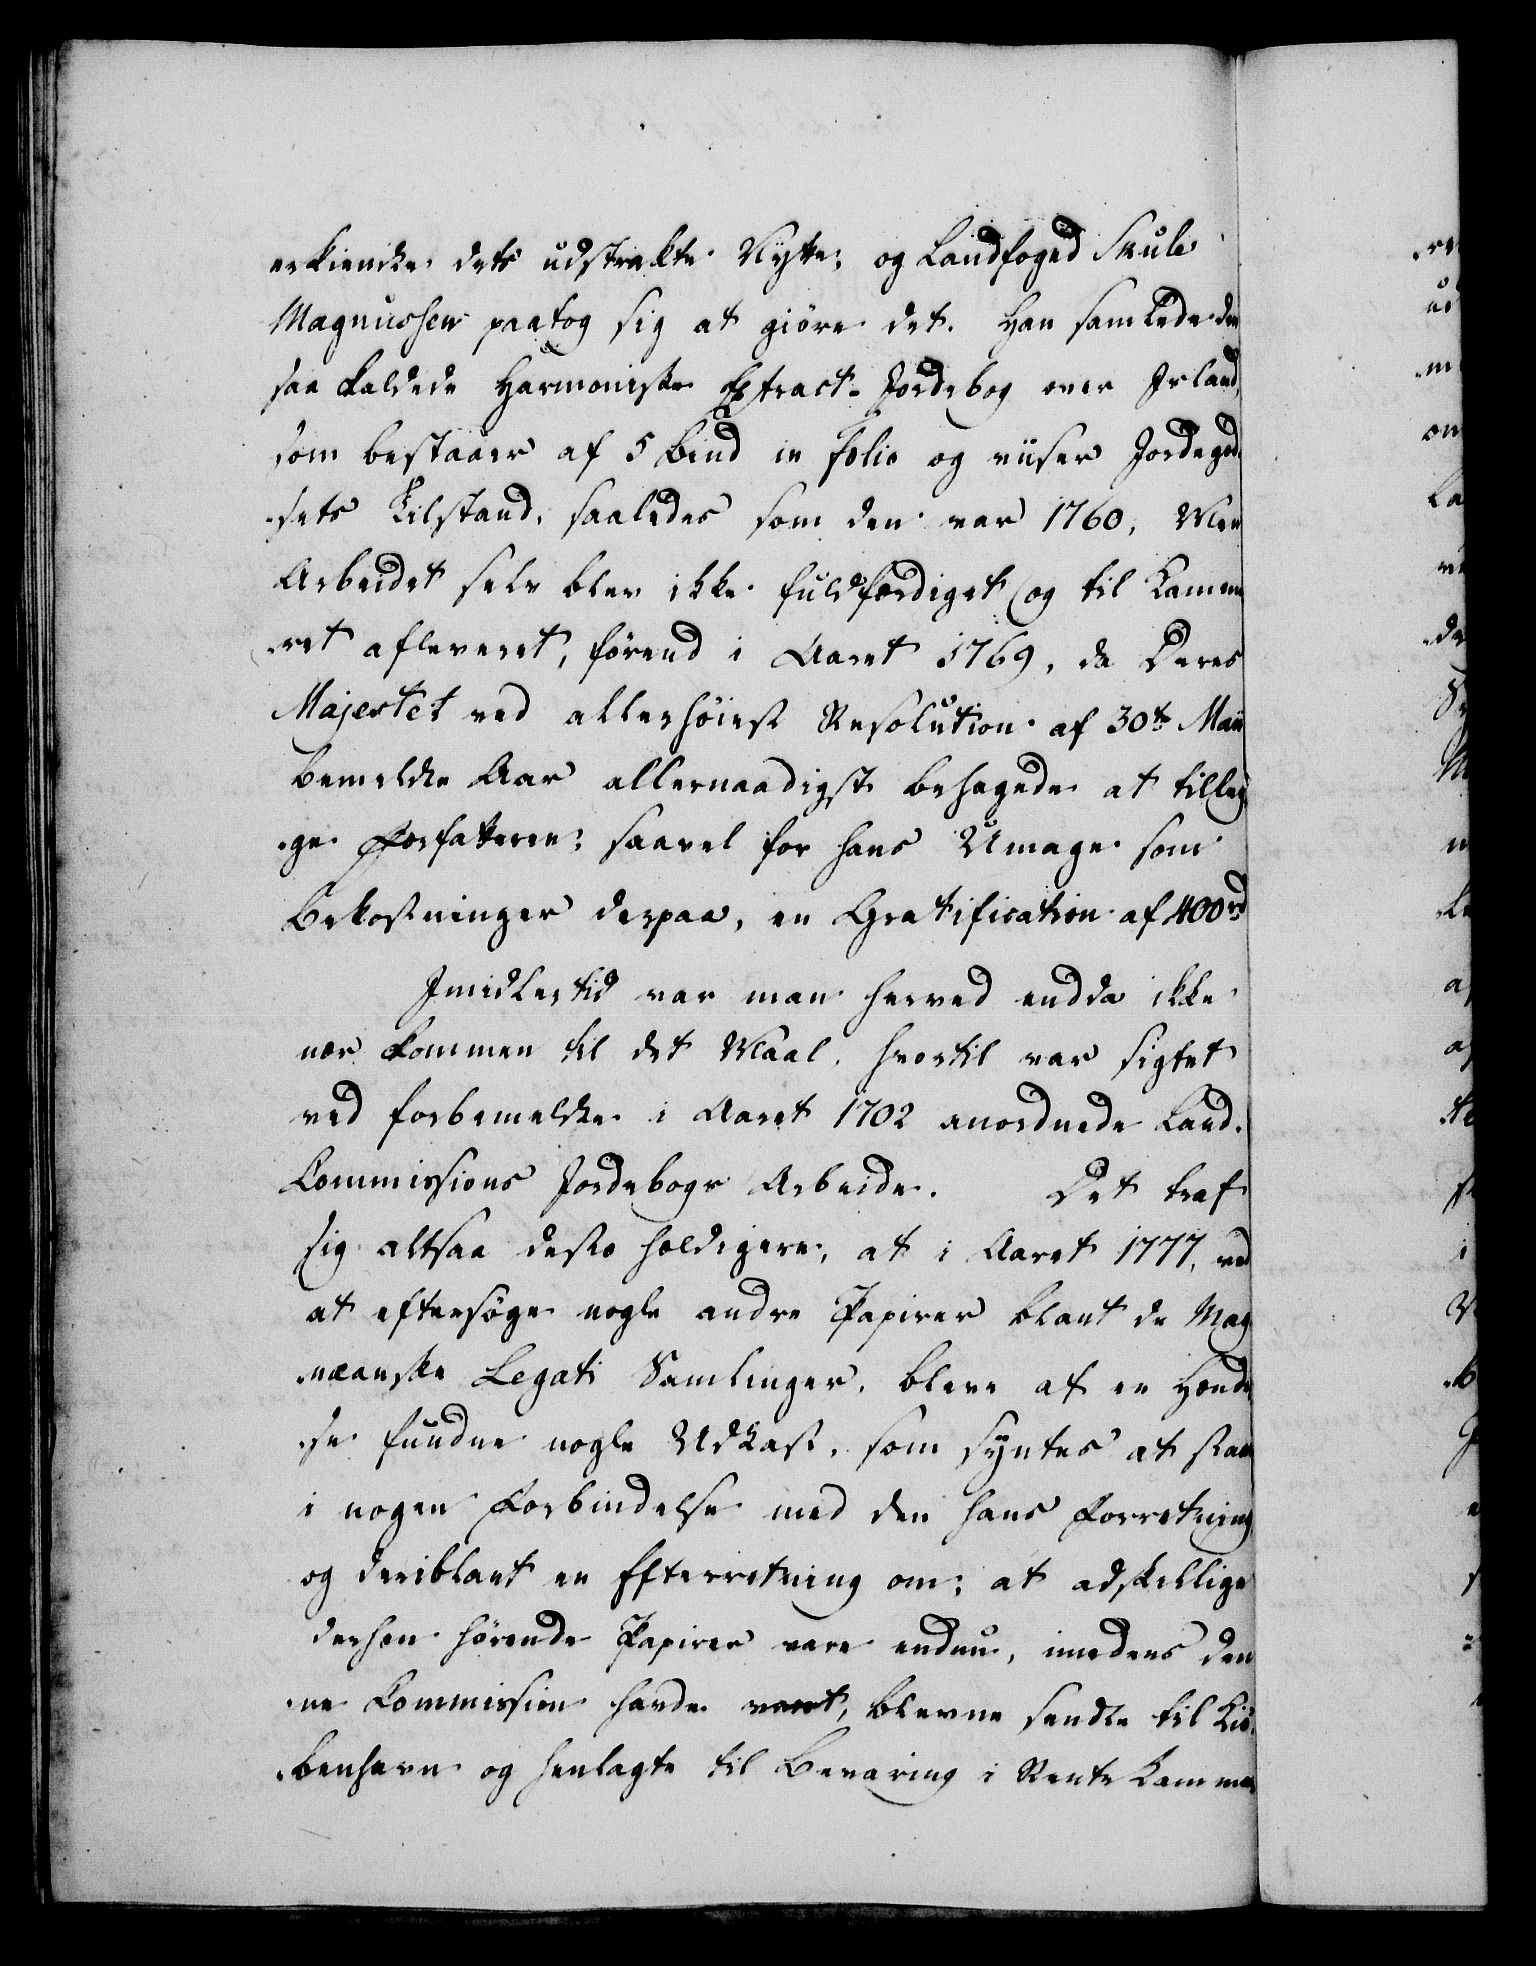 erkiendte dets udstrakte Nytte; og Landfoged Skule
Magnussen paatog sig at giöre det. Han samlede den
saa kaldede Harmoniske Extract-Jordebog over Island,
som bestaaer af 5 bind in folio og viiser Jordegod-
sets Tilstand, saaledes som den var 1760, Men
Arbeidet selv blev ikke fuldfærdiget og til Kamme-
ret afleveret, förend i Aaret 1769, da Deres
Majestet ved allerhöiest Resolution af 30te Maii
bemeldte Aar allernaadigst behagede at tillæg-
ge Forfatteren; saavel for hans Umage som
Bekostninger derpaa, en Gratification af 400 rd
Imidlertid var man herved endda ikke
nær kommen til det Maal, hvortil var sigtet
ved forbemeldte i Aaret 1702 anordnede Land-
Commissions Jordebogs Arbeide. Det traf
sig altsaa desto heldigere, at i Aaret 1777, ved
at eftersöge nogle andre Papirer blant de Mag
næanske Legati Samlinger, bleve af en Hændel
se fundne nogle Udkast, som syntes at staae
i nogen Forbindelse med den hans Forretning
og deriblant en Efterretning om; at adskillige
derhen hörende Papirer vare endnu, imedens den-
ne Commission havde varet, blevne sendte til Kiö-
benhavn og henlagte til Bevaring i Rente Kammer